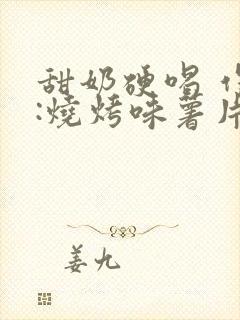 甜奶硬唱
:燒烤味薯片
姜九